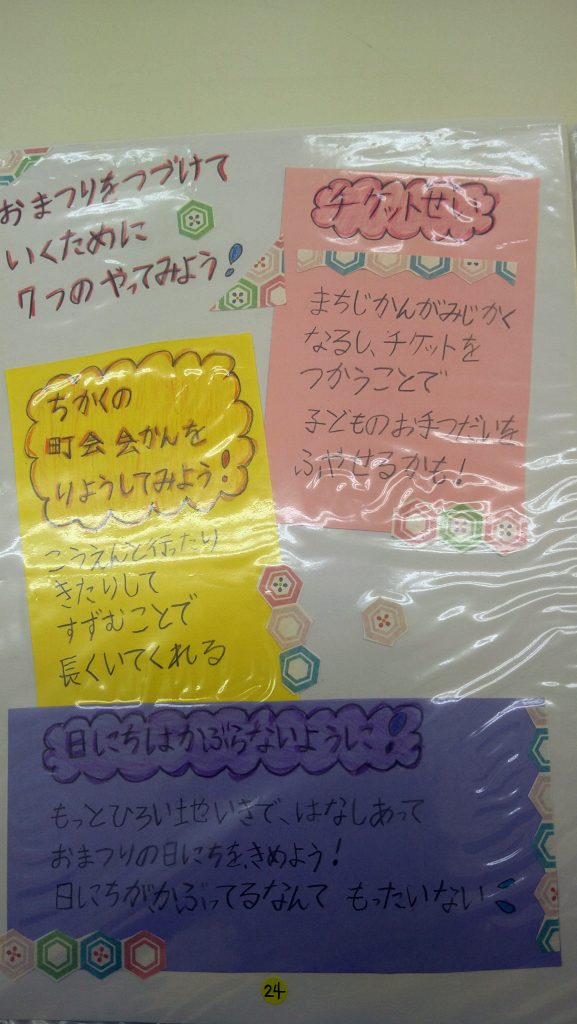 おまつりをつづけて
いくために
7つのやってみよう!
チケットせい
まちじかんがみじかく
なるし、チケットを
つかうことで
子どものお手つだいを
ふやせるかな!
ちかくの
町会会かんを
りようしてみよう!
こうえんと行ったり
きたりして
すずむことで
長くいてくれる
日にちはかぶらないように!
もっとひろい地いきで、はなしあって
おまつりの日にちを、きめよう!
日にちがかぶってるなんて もったいない
24